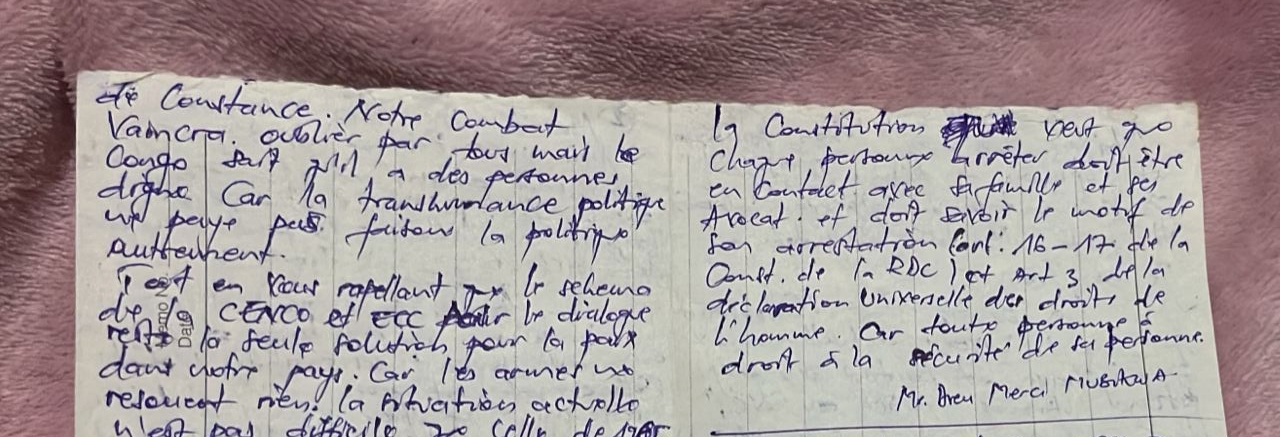 de Constance. Notre Combat
Vaincra. oublier par tous mais le
Congo sait qu'il a des personnes
digne Car la transhumance politique
ne paye pas. faisons la politique
autrement.
Tout en vous rapellant que le schema
de la CENCO et ECC pour le dialogue
reste la seule solution pour la paix
dans notre pays. Car les armes ne
resouent rien. la situation actuelle
n'est pas difficile que celle de
la Constitution veut que
chaque personne arrêter doit être
en Contact avec sa famille et ses
Avocat. et doit savoir le motif de
son arrestation (art: 16-17 de la
Const. de la RDC) et Art 3 de la
déclaration Universelle des droits de
l'homme. Car toute personne à
droit à la sécurité de sa personne.
Mr. Dieu Merci